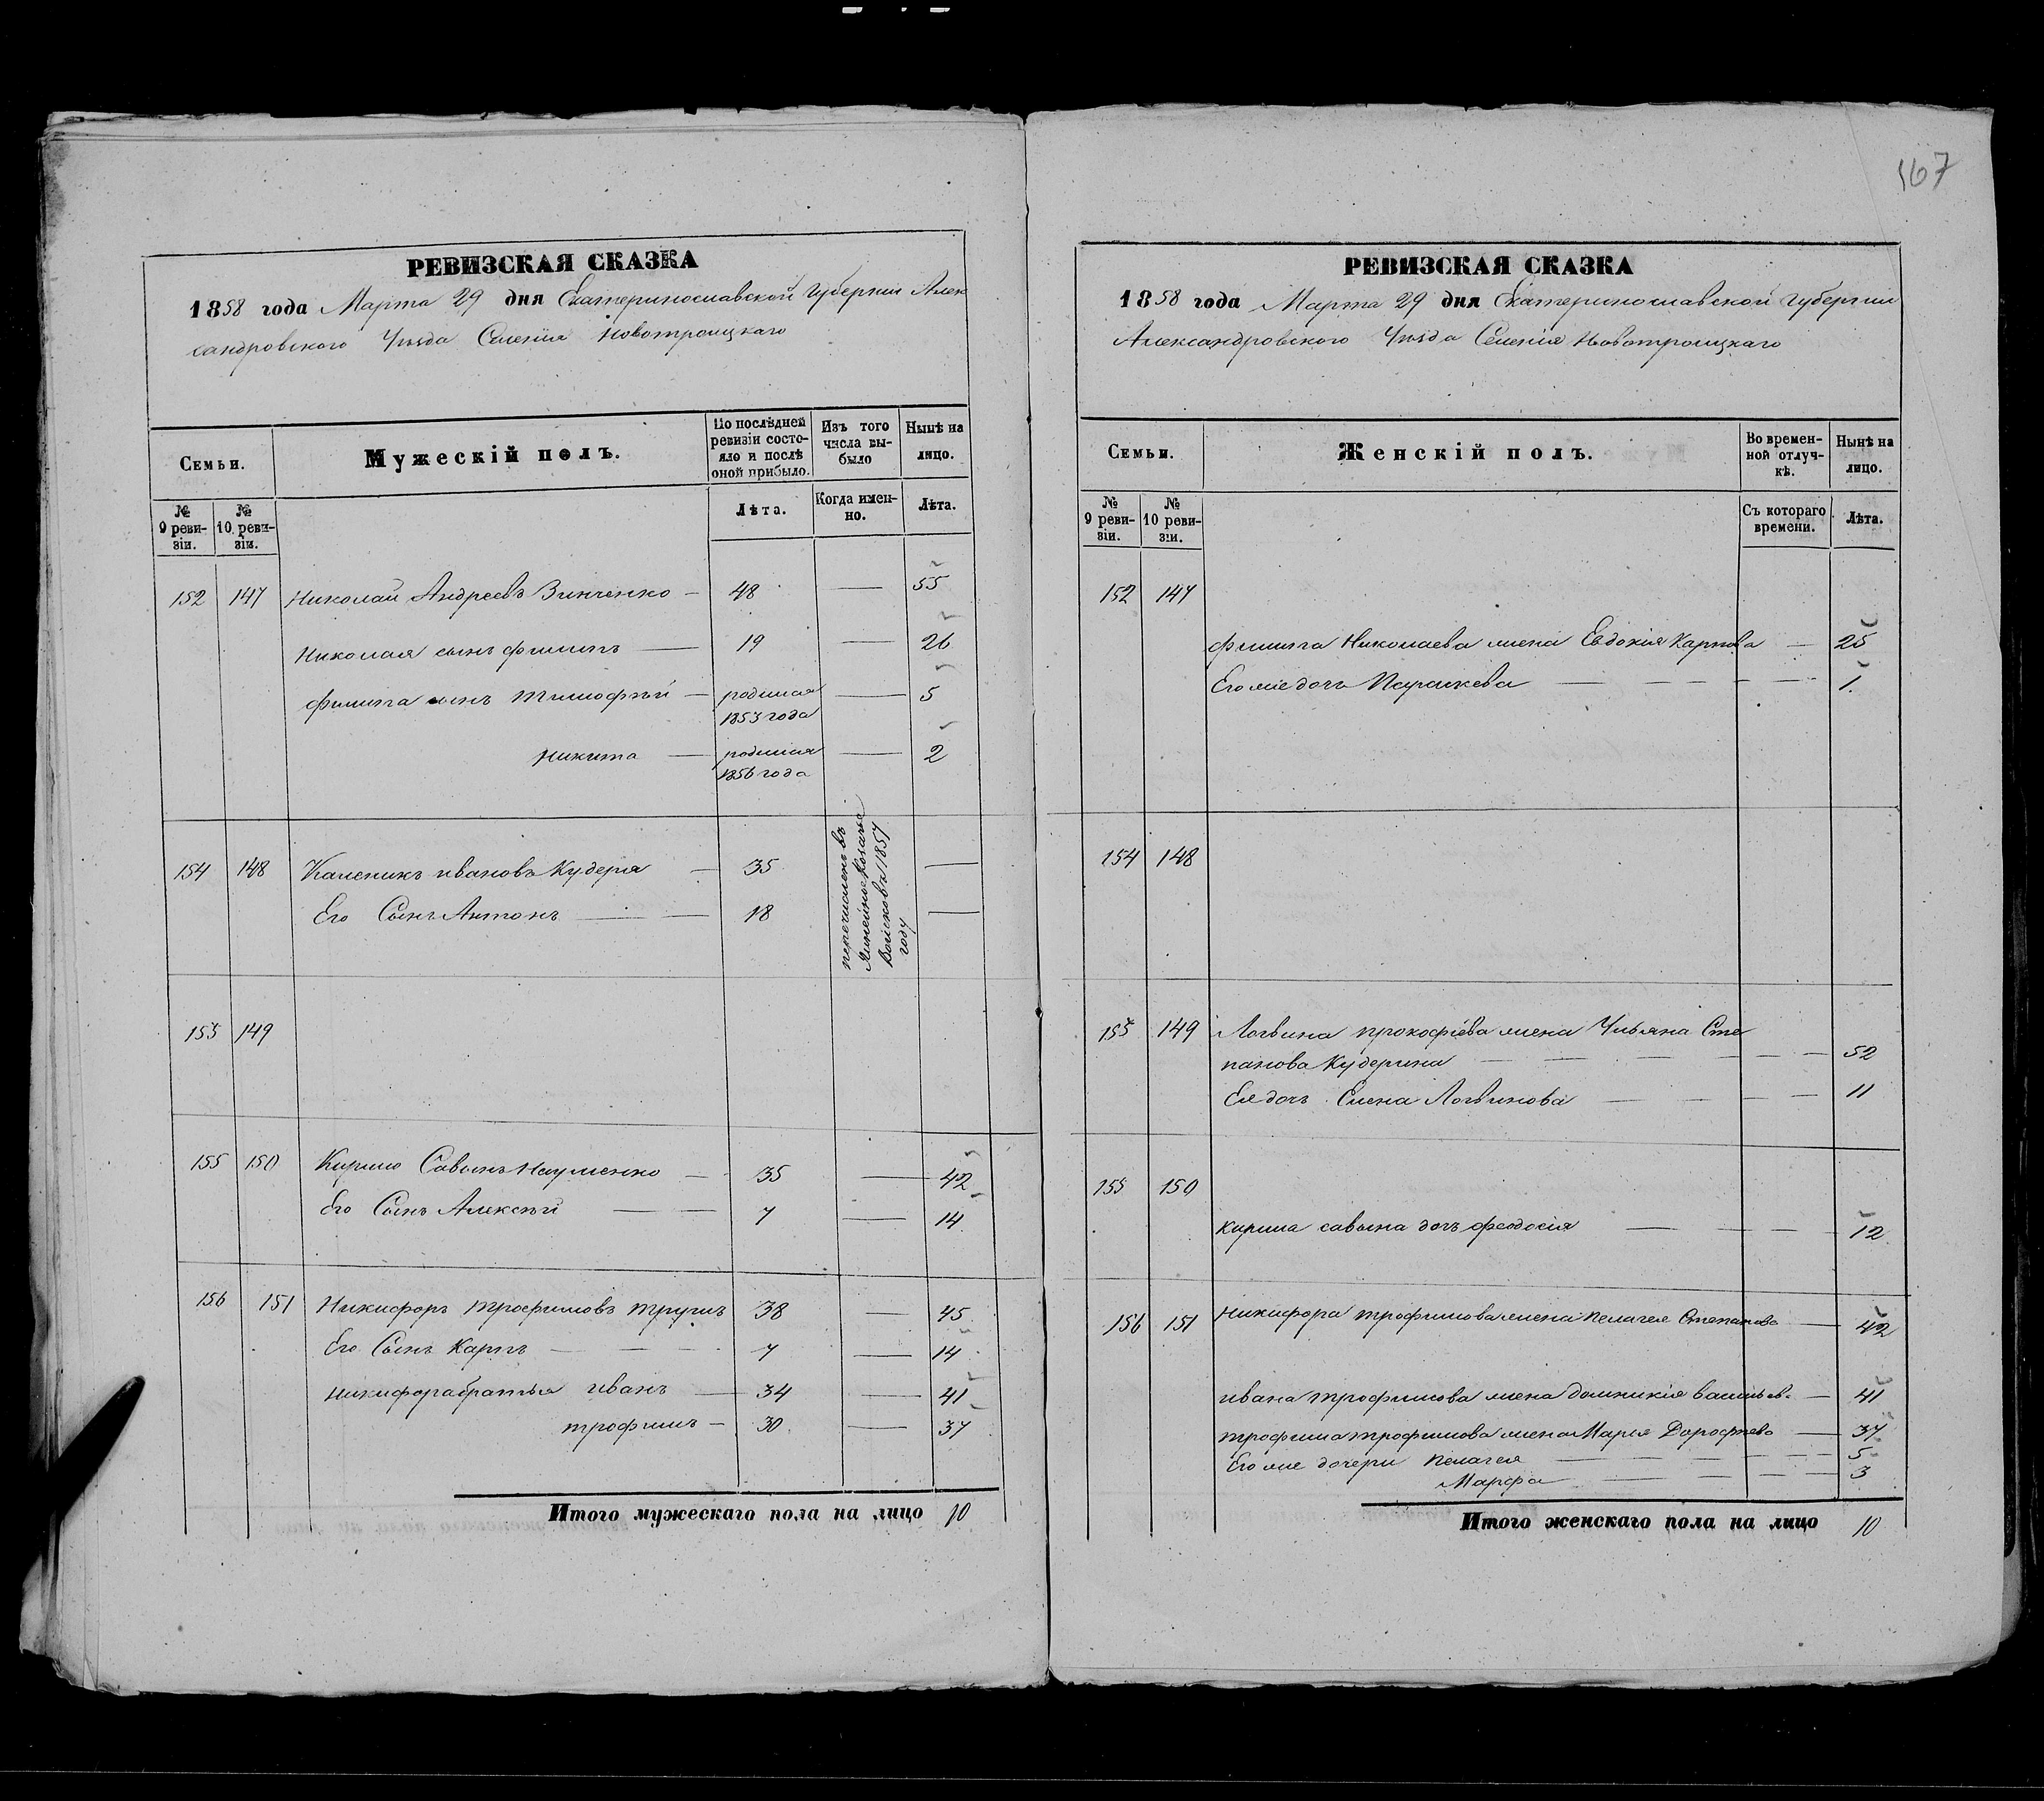 167
РЕВИЗСКАЯ СКАЗКА
1858 года Марта 29 дня Екатеринославской Губернии Алек
сандровского Уѣзда Селенія Новотроицкаго
Семьи.
Мужескій полъ.
По послѣдней ревизіи состояло и послѣ оной прибыло.
Изъ того числа выбыло
Нынѣ на лицо.
№ 9 ревизіи.
№ 10 ревизіи.
Лѣта.
Когда именно.
Лѣта.
152 147 Николай Андреевъ Зинченко — 48 — 55
Николая сынъ Филипъ — 19 — 26
Филипа сынъ Тимофѣй — родился 1853 года — 5
Никита — родился 1856 года — 2
154 148 Каленикъ Ивановъ Кудеря — 35 —
Его Сынъ Антонъ — 18 —
перечисленъ въ
Линейное Козачье
Войско въ 1857
году
155 149
155 150 Кирило Савинъ Науменко — 35 — 42
Его Сынъ Алексѣй — 7 — 14
156 151 Никифоръ Трофимовъ 38 — 45
Его Сынъ Карпъ — 7 — 14
Никифора братья Иванъ — 34 — 41
Трофимъ — 30 — 37
Итого мужескаго пола на лицо 10
РЕВИЗСКАЯ СКАЗКА
1858 года Марта 29 дня Екатеринославской Губернии
Александровского Уѣзда Селенія Новотроицкаго
Семьи.
Женскій полъ.
Во временной отлучкѣ.
Нынѣ на лицо.
№ 9 ревизіи.
№ 10 ревизіи.
Съ котораго времени.
Лѣта.
152 147
Филипа Николаева жена Евдокия Карпова — 25
Его же дочь Параскева — 1
154 148
155 149 Логвина Прокофіева жена Ульяна Сте
панова Кудерина — 52
Ея дочь Елена Логвинова — 11
155 150
Кирила Савина дочь Феодосія — 12
156 151 Никифора Трофимова жена Пелагея Степанова — 42
Ивана Трофимова жена Домникія Васильев. — 41
Трофима Трофимова жена Марья Дорофѣева — 37
Его же дочери Пелагея — 5
Марфа — 3
Итого женскаго пола на лицо 10